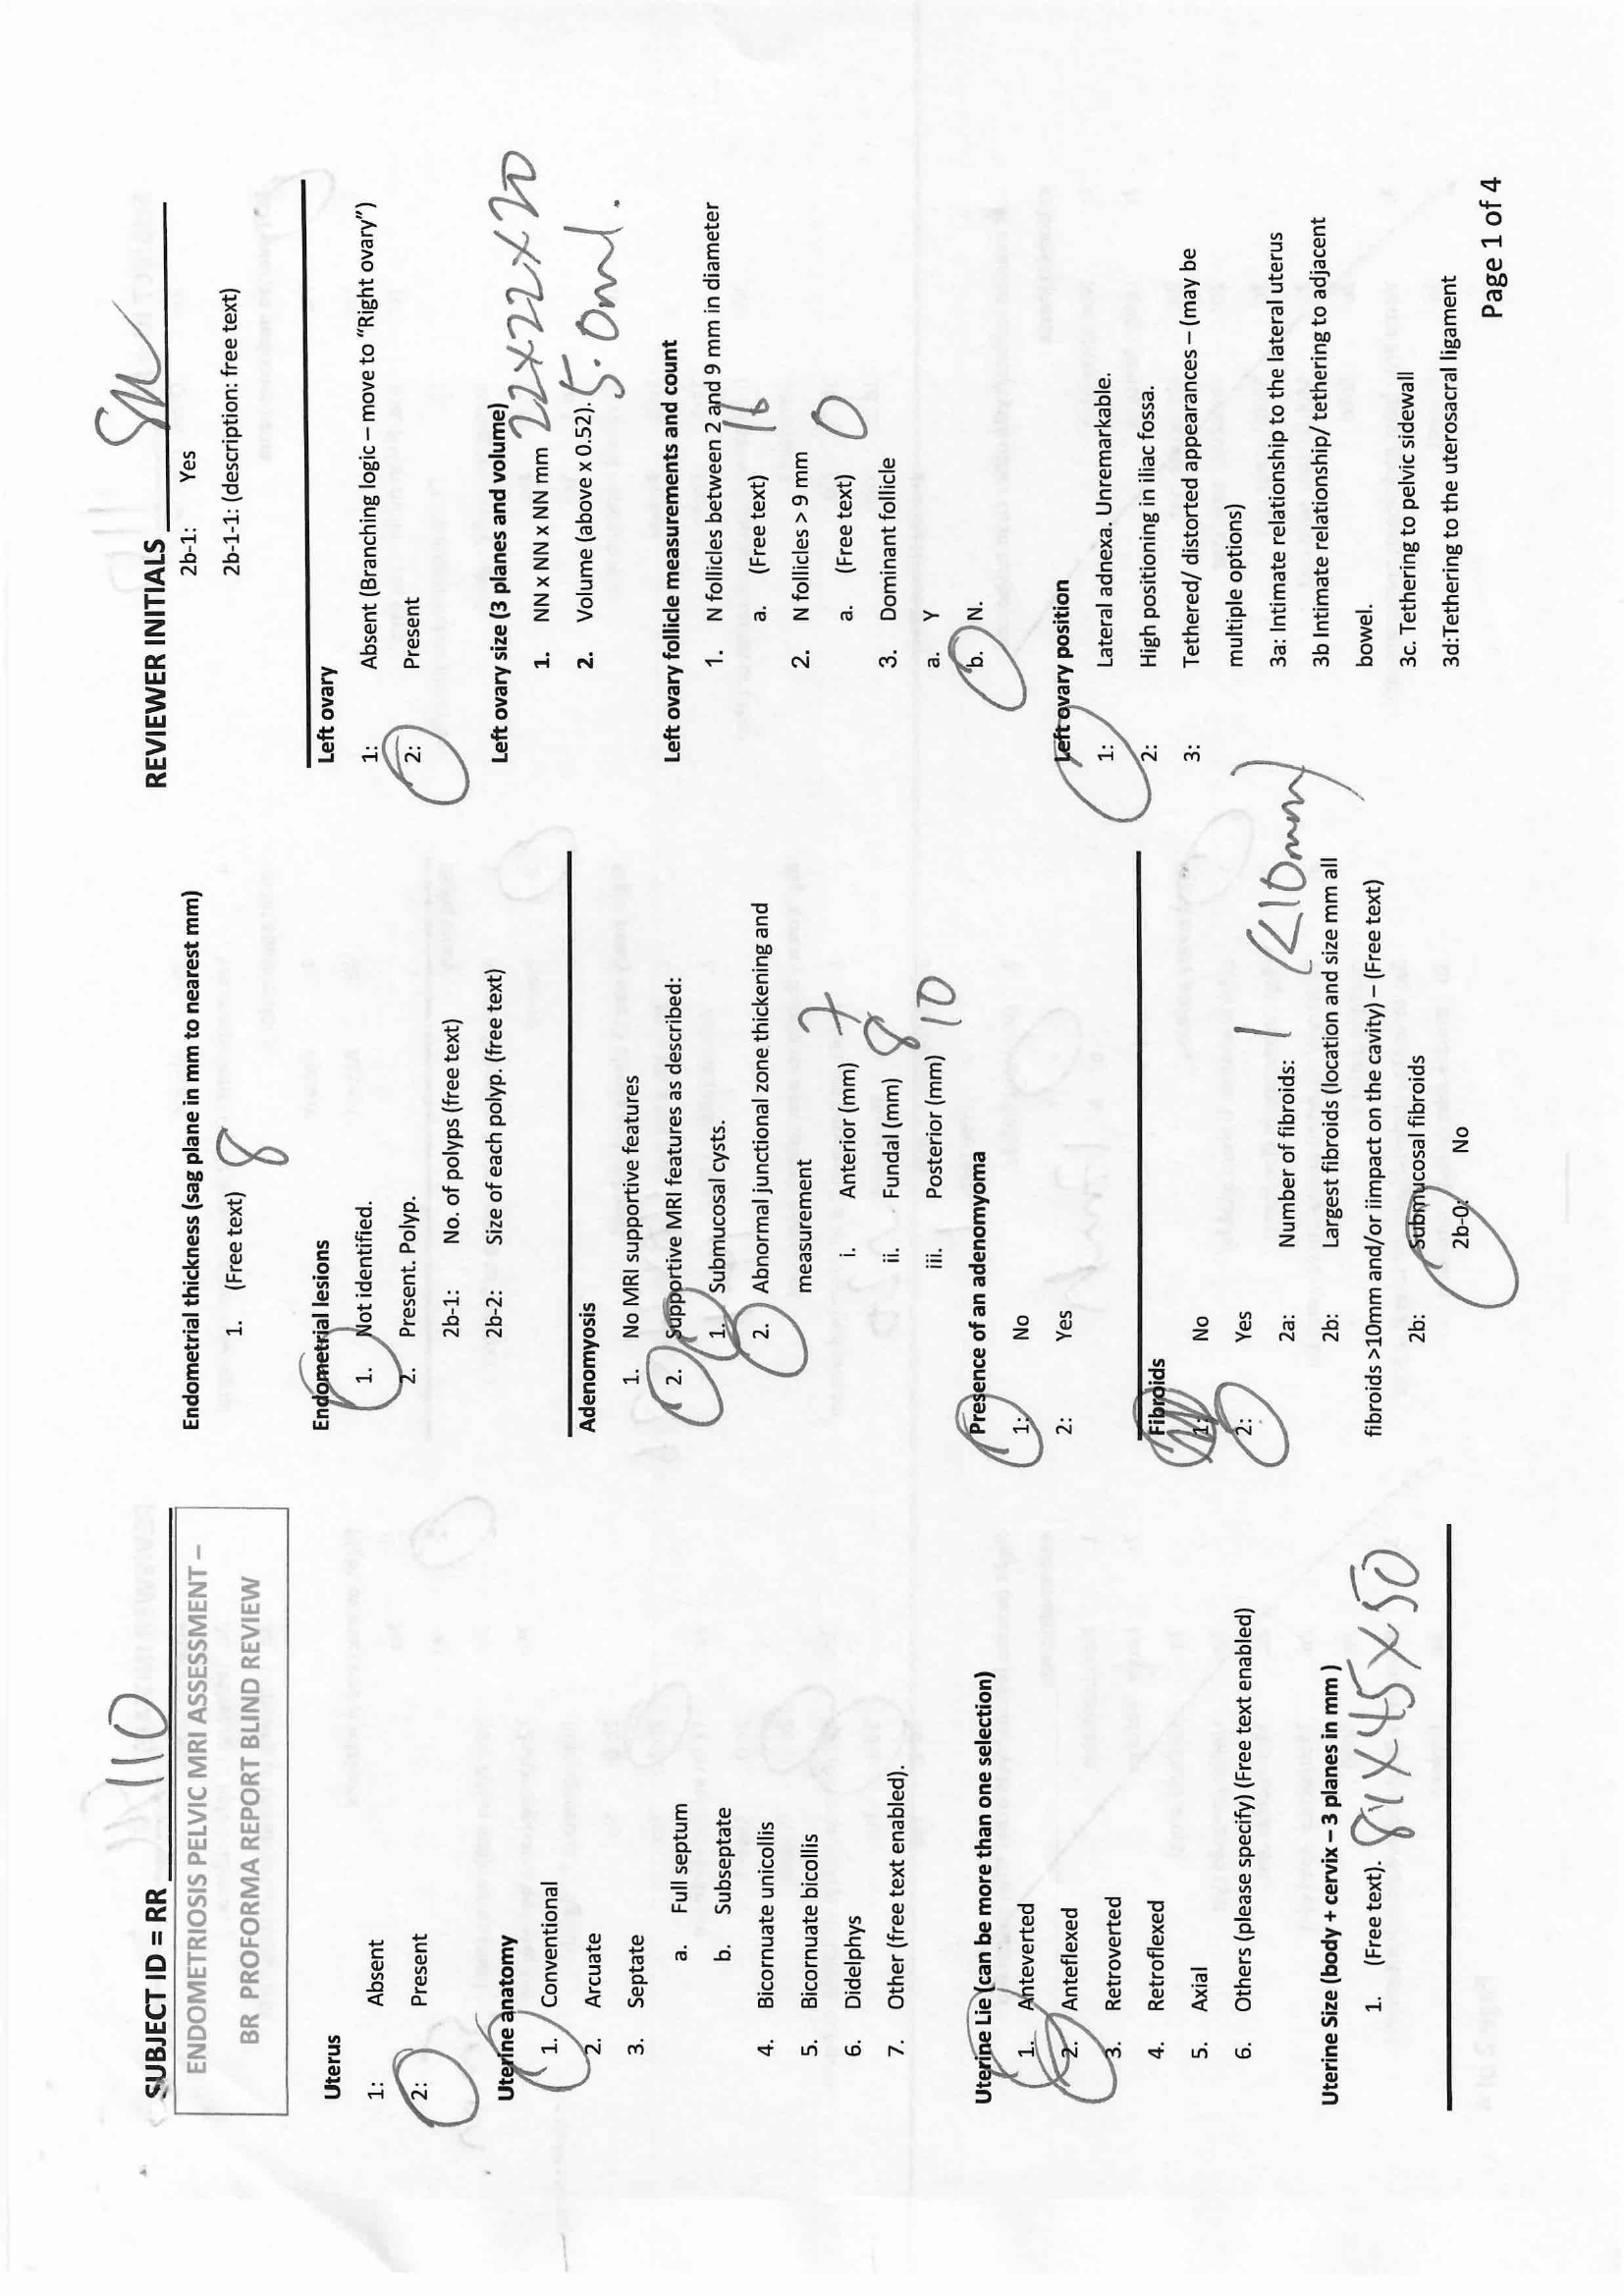 SUBJECT ID = RR 110
ENDOMETRIOSIS PELVIC MRI ASSESSMENT –
BR PROFORMA REPORT BLIND REVIEW
Uterus
1: Absent
2: Present
Uterine anatomy
1. Conventional
2. Arcuate
3. Septate
a. Full septum
b. Subseptate
4. Bicornuate unicollis
5. Bicornuate bicollis
6. Didelphys
7. Other (free text enabled).
Uterine Lie (can be more than one selection)
1. Anteverted
2. Anteflexed
3. Retroverted
4. Retroflexed
5. Axial
6. Others (please specify) (Free text enabled)
Uterine Size (body + cervix – 3 planes in mm )
1. (Free text). 81 x 45 x 50
Endometrial thickness (sag plane in mm to nearest mm)
1. (Free text) 8
Endometrial lesions
1. Not identified.
2. Present. Polyp.
2b-1: No. of polyps (free text)
2b-2: Size of each polyp. (free text)
Adenomyosis
1. No MRI supportive features
2. Supportive MRI features as described:
1. Submucosal cysts.
2. Abnormal junctional zone thickening and
measurement
i. Anterior (mm) 7
ii. Fundal (mm) 8
iii. Posterior (mm) 10
Presence of an adenomyoma
1: No
2: Yes
Fibroids
1: No
2: Yes
2a: Number of fibroids: 1 (<10mm)
2b: Largest fibroids (location and size mm all
fibroids >10mm and/or iimpact on the cavity) – (Free text)
2b: Submucosal fibroids
2b-0: No
REVIEWER INITIALS
2b-1: Yes
2b-1-1: (description: free text)
Left ovary
1: Absent (Branching logic – move to "Right ovary")
2: Present
Left ovary size (3 planes and volume)
1. NN x NN x NN mm 22x22x20
2. Volume (above x 0.52). 5.0ml.
Left ovary follicle measurements and count
1. N follicles between 2 and 9 mm in diameter
a. (Free text) 16
2. N follicles > 9 mm
a. (Free text) 0
3. Dominant follicle
a. Y
b. N.
Left ovary position
1: Lateral adnexa. Unremarkable.
2: High positioning in iliac fossa.
3: Tethered/ distorted appearances – (may be
multiple options)
3a: Intimate relationship to the lateral uterus
3b Intimate relationship/ tethering to adjacent
bowel.
3c. Tethering to pelvic sidewall
3d:Tethering to the uterosacral ligament
Page 1 of 4